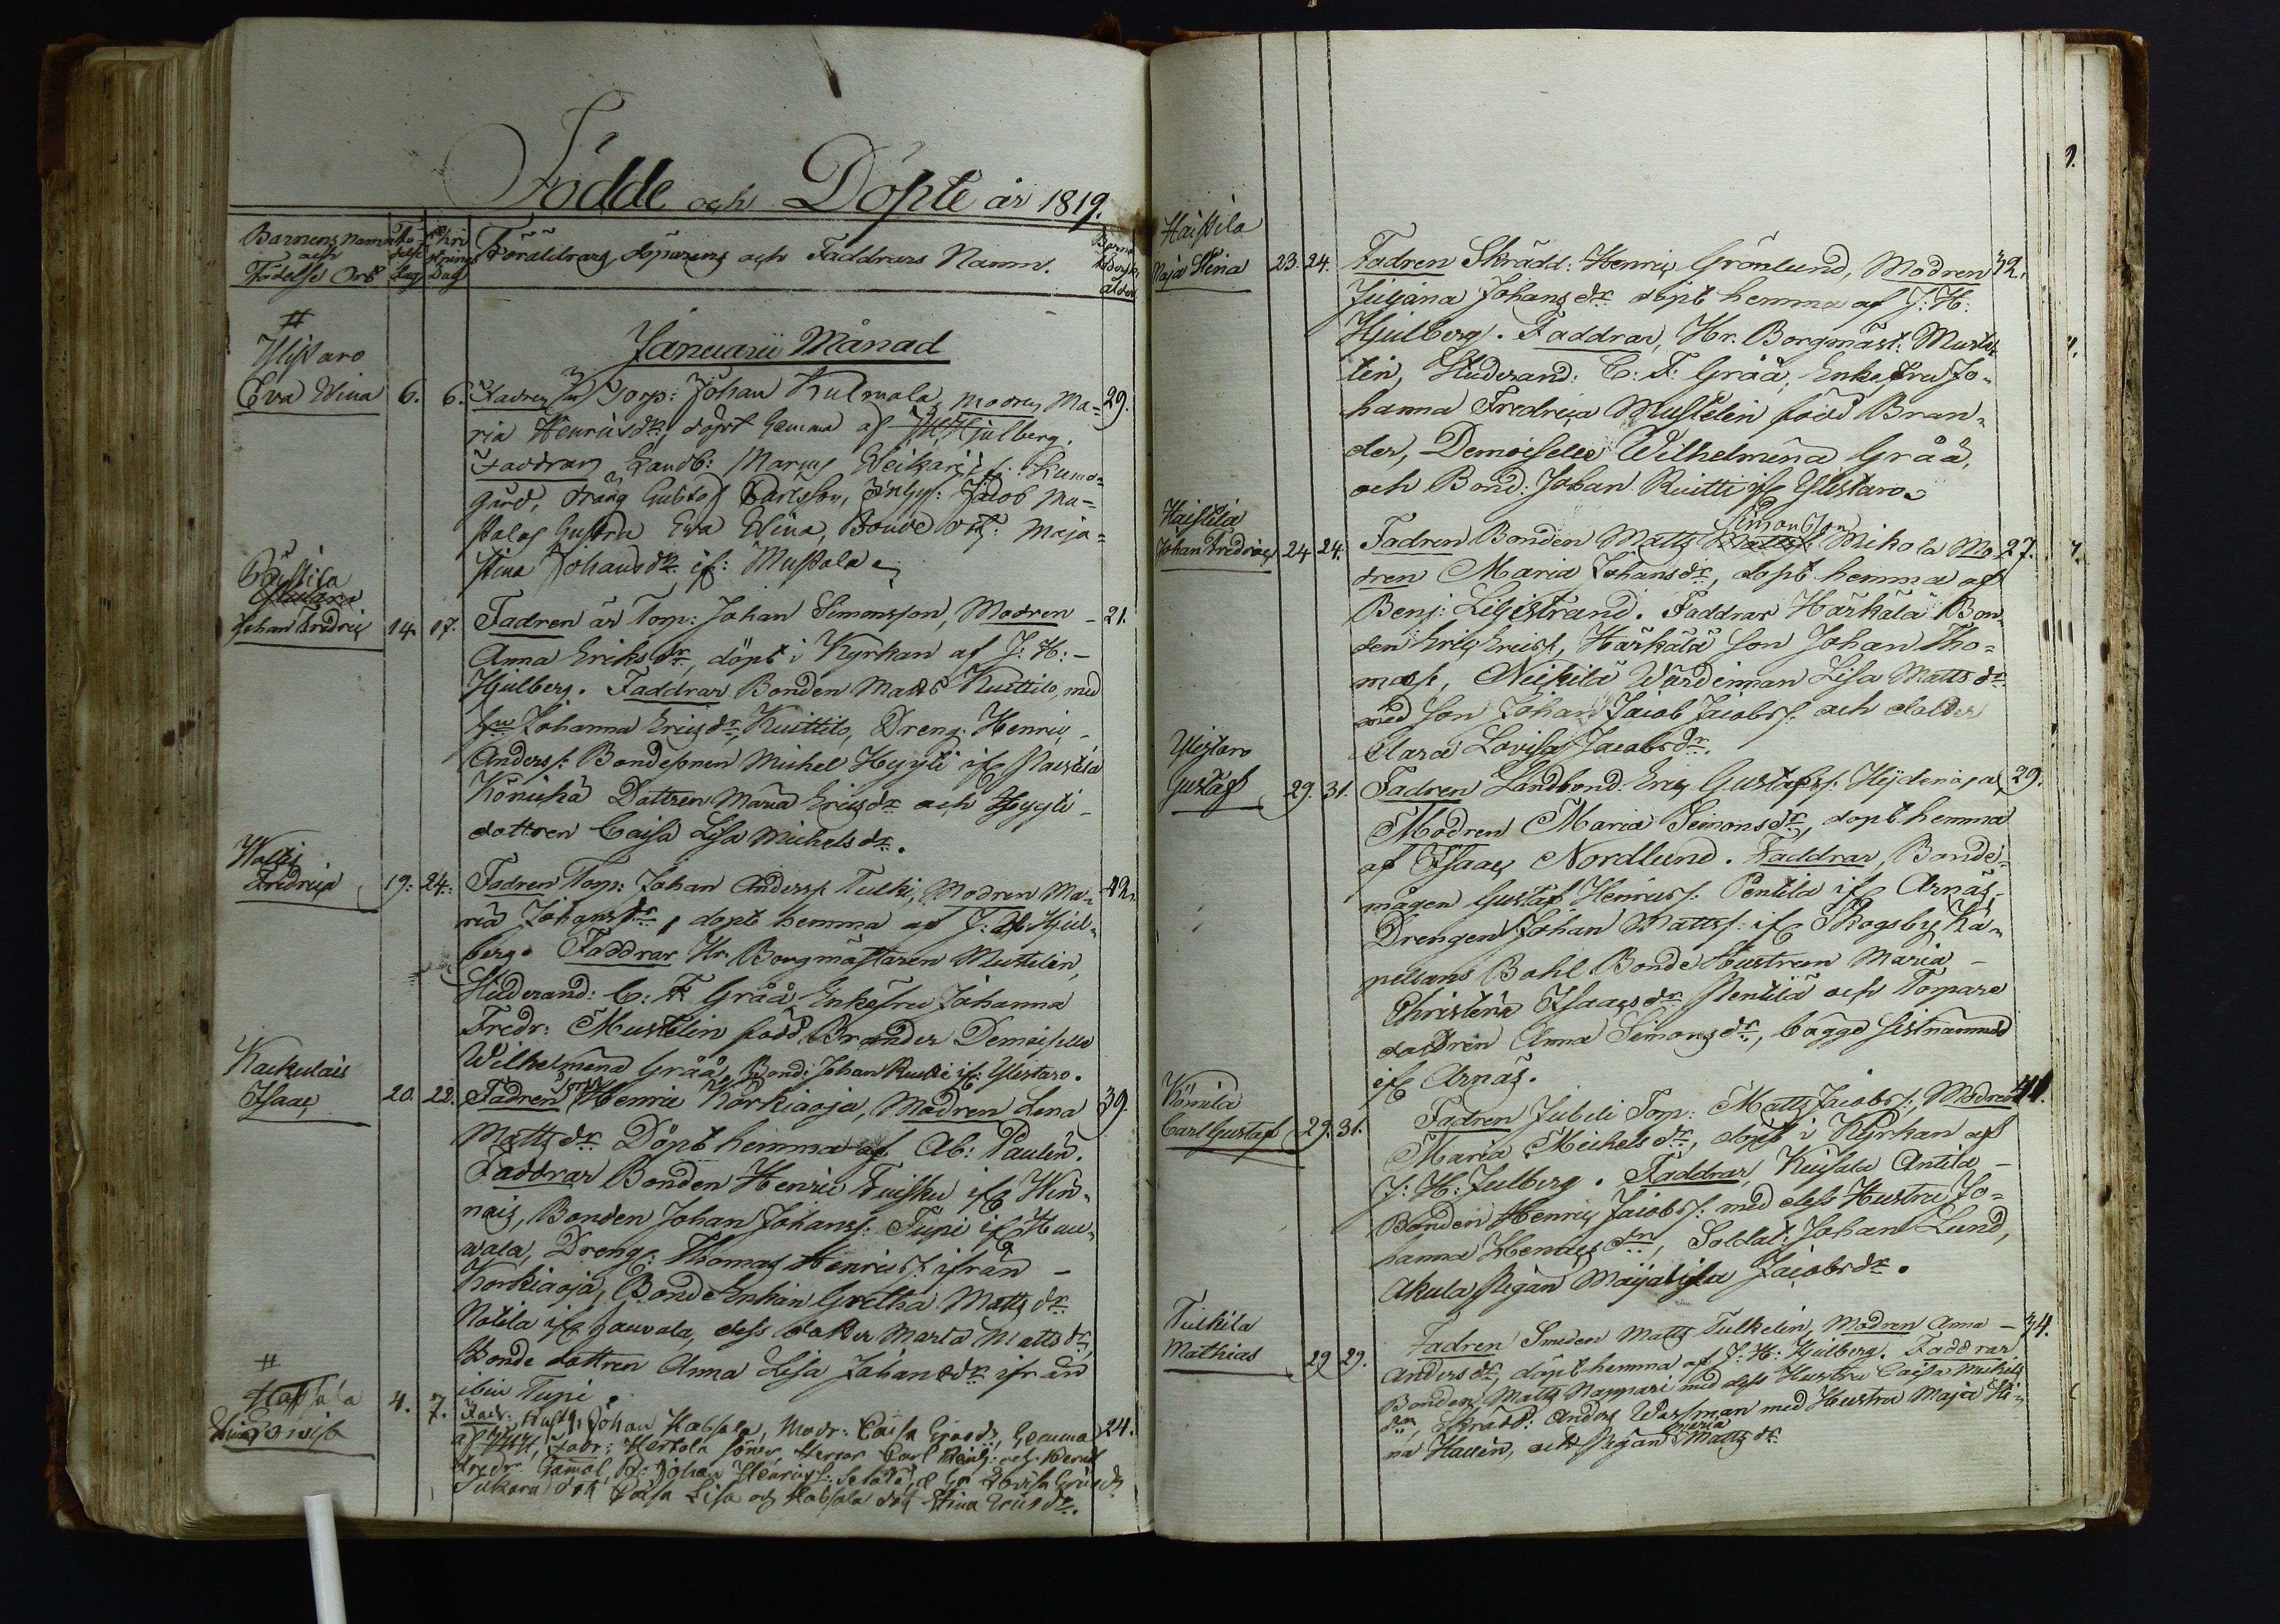 Födde och Döpte år 1819.
Barnens namn och Födelse Ort
Födelse dag
Christnings Dag
Föräldrars, döparens och Faddrars Namn.
Barna
ålder
Januarii Månad
#
Ylistaro
Eva Wina 6. 6. Fadren Torp: Johan Kulmala, modren Ma= 29.
ria Henricsdr, döpt hemma af J H Hjulberg.
Faddrar Landb: Marcus Weikari if: Kumo=
gård, dräng Gustaf Carlsson, Jacob Mu=
stalas hustru Eva Wina, Bonde dott: Maja=
stina Johansdr if: Mustala
Johan Fredric 14. 17. Fadren är Torp: Johan Simonsson, Modren - 21.
Anna Eriksdr, döpt i Kyrkan af J: H: -
Hjulberg. Faddrar Bonden Matts Kuittilo, med
hu Johanna Ericsdr, Kuittilo, Dreng: Henric -
Anderss: Bondesonen Michel Hyyti if
Könickä Dottren Maria Ericsdr och Hyyti -
dottren Caisa Lisa Michelsdr.
Waltz
Fredrica 19: 24: Fadren Torp: Johan Anderss: Tulki, Modren Ma- 42.
ria Johansdr, döpt hemma af J: H: Hjul-
berg. Faddrar Hr. Borgmästaren Mustelin,
Studerand: C: F: Gråå Enkefru Johanna
Fredr: Mustelin född Brander Demoiselle
Wilhelmina Gråå, Bond: Johan Ruitti if: Ylistaro.
Kackulais
Isaac 20. 22. Fadren Torp Henric Korkiaoja, Modren Lena 39.
Mattsdr Döpt hemma af Ab: Paulin.
Faddrar Bonden Henric Tuisku if Win-
nais, Bonden Johan Johanss: Tupi if Hau-
vala, Dreng: Thomas Henricss: ifrån -
Korkiaoja, Bonde Enkan Gretha Mattsdr
Notila if Hauvala, dess dotter Marta Mattsdr,
Bonde dottren Anna Lisa Johansdr ifrån
ibm Tupi.
#
Kapsala
Lowisa 4. 7. Fadr: Johan Kapsala, Modr: Caisa hemma 24.
af JHH, Fadr: Herrar Carl
Fredr: Gamal, Johan Henricss: Lovisa
Caisa Lisa och Kapsala dott Stina Ericsdr.
Haistila
Maja Stina 23. 24. Fadren Skrädd: Henric Grönlund, Modren 32.
Juliana Johansdr döpt hemma af J: H:
Hjulberg. Faddrar, Hr. Borgmäst: Muste-
lin, Studerand: C: F: Gråå, Enkefru Jo-
hanna Fredrica Mustelin född Bran-
der, Demoiselle Wilhelmina Gråå,
och Bond: Johan Ruitti if Ylistaro.
Haistila
Johan Fredric 24 24. Fadren Bonden Matts Simonsson Mikola Mo- 27.
dren Maria Johansdr, döpt hemma af
Benj: Liljestrand. Faddrar Härkälä Bon-
den Eric Ericss, Härkälä son Johan Tho=
mass, Wärdinnan Lisa Mattsdr
med son Johan Jacob Jacobss: och dotter
Clara Lovisa Jacobsdr.
Ylistaro
Gustaf 29. 31. Fadren Landbond. Eric Gustafss: Heidenoja, 29.
Modren Maria Simonsdr, döpt hemma
af Isaac Nordlund. Faddrar, Bonde-
mågen Gustaf Henricss: Pentila if Arnäs,
Drengen Johan Mattss: if Skogsby, Ka-
pellans Bohl Bonde Hustrun Maria -
Christina Isaacsdr Pentila och Torpare
dottren Anna Simonsdr, bägge sistnämnde
if Arnäs.
Könila
Carl Gustaf 29. 31. Fadren Torp: Matts Jacobss:, Modren 41.
Maria Michelsdr, döpt i Kyrkan af
J: H: Julberg. Faddrar, Antila -
Bonden Henric Jacobss: med dess Hustru Jo=
hanna Henricsdr, Soldat: Johan Lund,
Akula Pigan Majalisa Jacobsdr.
Tulkila
Mathias 29 29. Fadren Smeden Matts Tulkelin, Modren Anna - 34.
Andersdr, döpt hemma af J: H: Hjulberg. Faddrar
Bonden Matts Nappari med dess Hustru Caisa Michels
dr, Skrädd: Anders Wassman med Hustru Maja Sti-
na Haven, och Pigan Maria Mattsdr